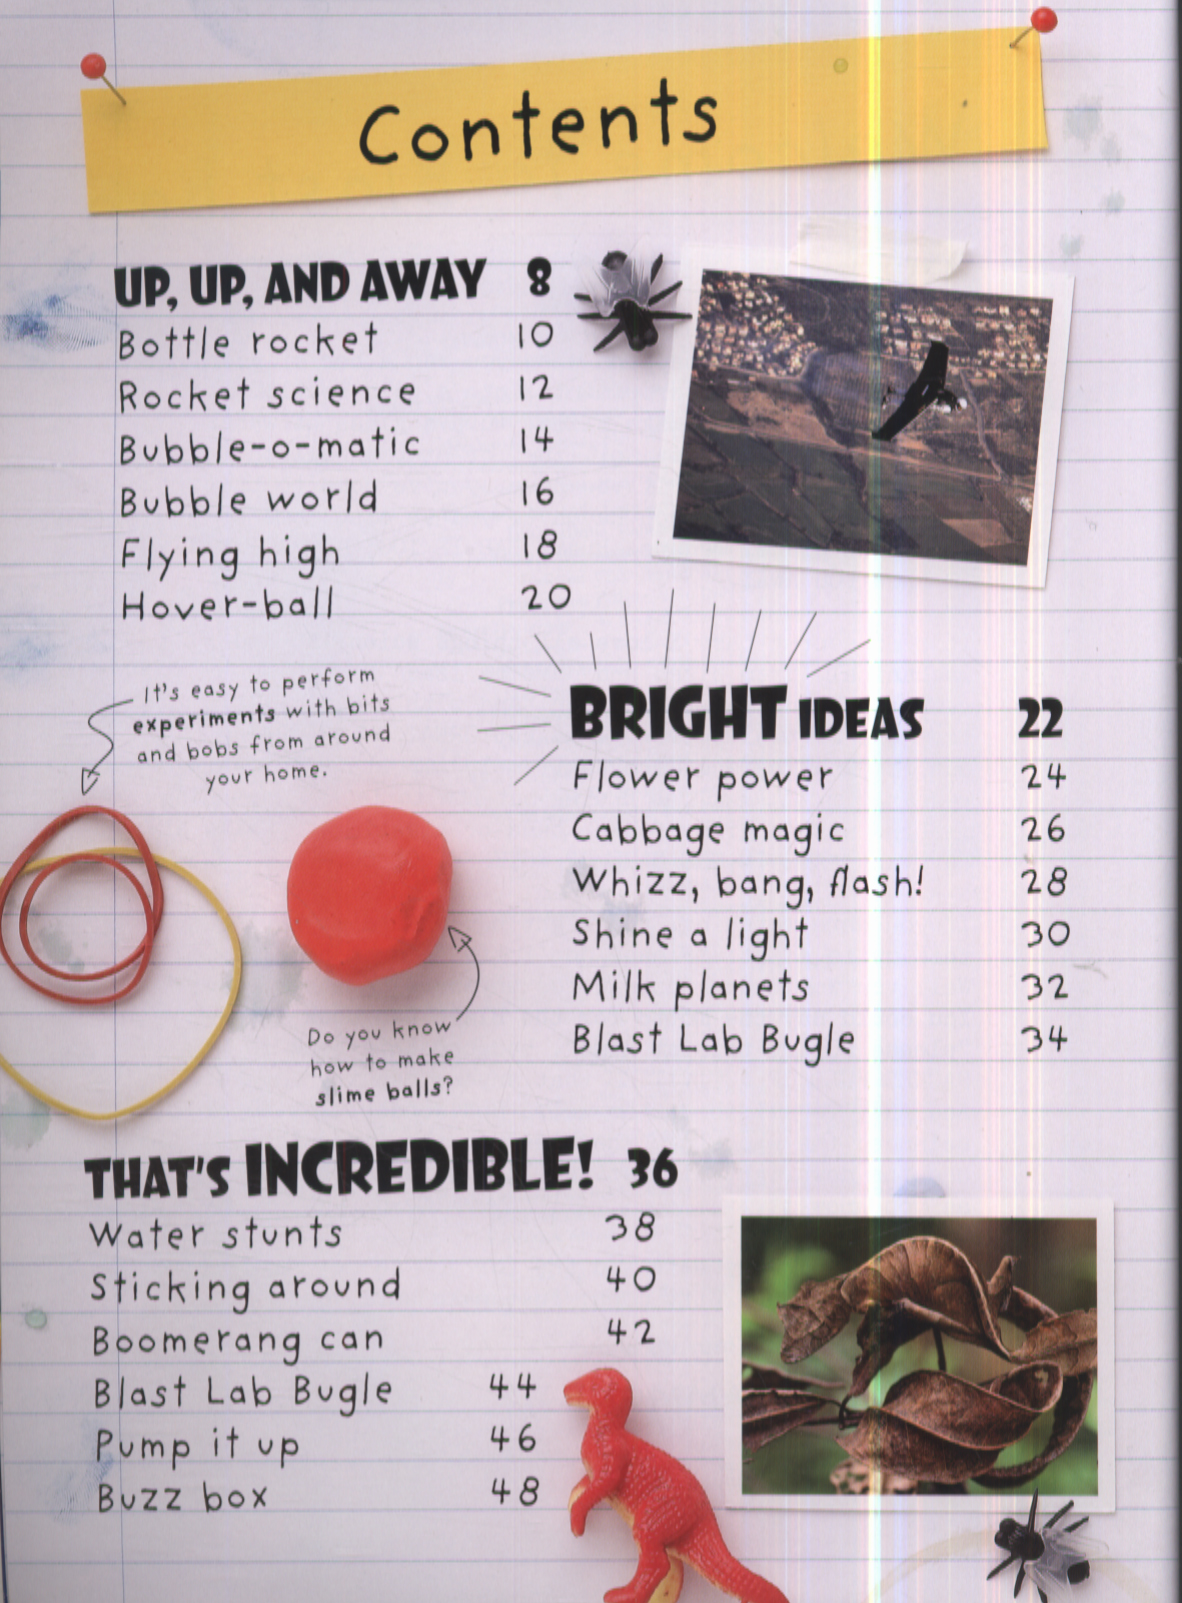 Contents
UP, UP, AND AWAY 8
Bottle rocket 10
Rocket science 12
Bubble-o-matic 14
Bubble world 16
Flying high 18
Hover-ball 20
It's easy to perform
experiments with bits
and bobs from around
your home.
BRIGHT IDEAS 22
Flower power 24
Cabbage magic 26
Whizz, bang, flash! 28
Shine a light 30
Milk planets 32
Blast Lab Bugle 34
Do you know
how to make
slime balls?
THAT'S INCREDIBLE! 36
Water stunts 38
Sticking around 40
Boomerang can 42
Blast Lab Bugle 44
Pump it up 46
Buzz box 48